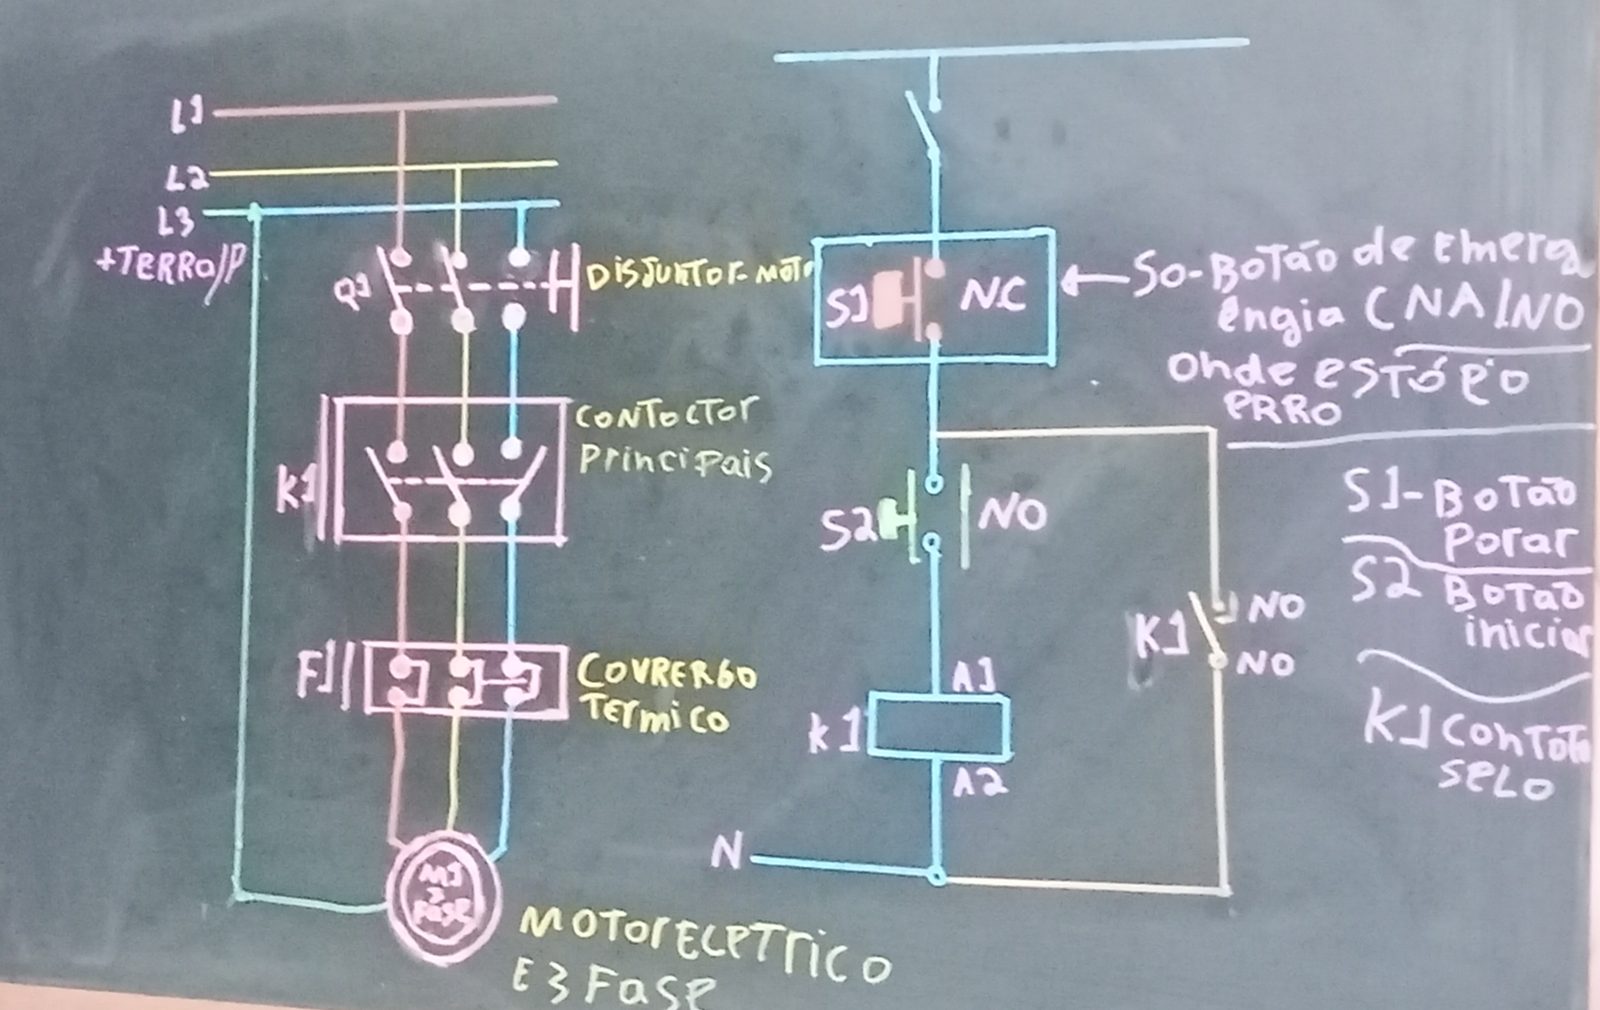 L1
L2
L3
+TERRO/P
Q1
DISJUNTOR-MOTO
K1
CONTOCTOR
PrinciPais
F1
COVRERGO
TErmico
M1
3
Fase
MOTOrELETrico
E 3 Fase
S1
NC
SO-BOTÃO de Emerg
êngia (NA/NO
Onde ESTÓ EO
ERRO
S2
NO
S1-BOTÃO
Porar
S2 BOTÃO
iniciar
K1
NO
NO
K1 CONTOTO
SELO
A1
K1
A2
N